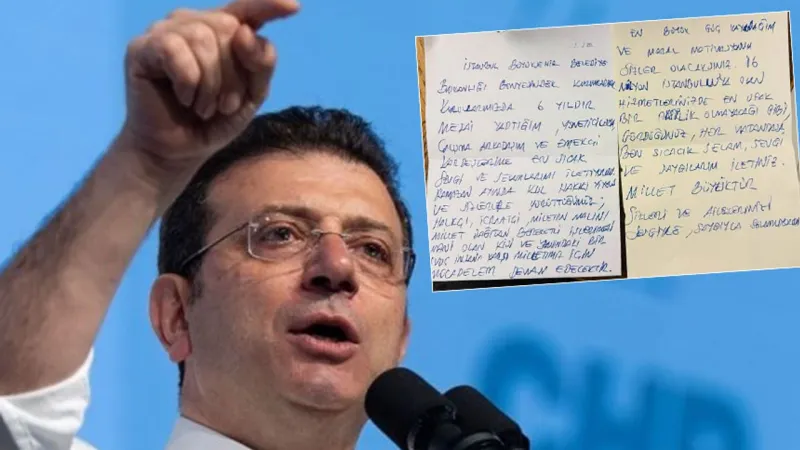 İSTANBUL BÜYÜKŞEHİR BELEDİYE
BAŞKANLIĞI BÜNYESİNDEKİ
KURULLARIMIZDA 6 YILDIR
MESAİ YAPTIĞIM, YÖNETİCİLERİM,
ÇALIŞMA ARKADAŞIM VE EMEKÇİ
KARDEŞLERİME EN SICAK
SEVGİ VE SELAMLARIMI İLETİYORUM.
RAMAZAN AYINDA KUL HAKKI YİYEN
VE SİZLERLE YÜRÜTTÜĞÜMÜZ,
HALKÇI, İCRAATÇI MİLLETİN MALINI
MİLLETE DAĞITAN BEREKETLİ İŞLERİMİZE
MANİ OLAN KİŞİ VE YANINDAKİ BİR
AVUÇ İNSANA KARŞI MİLLETİMİZ İÇİN
MÜCADELEM DEVAM EDECEKTİR.
EN BÜYÜK GÜÇ KAYNAĞIM
VE MORAL MOTİVASYONUM
SİZLER OLACAKSINIZ. 16
MİLYON İSTANBULLUYA OLAN
HİZMETLERİNİZDE EN UFAK
BİR AKSİLİK OLMAYACAĞI GİBİ,
GÖRDÜĞÜNÜZ, HER VATANDAŞA
BEN SICACIK SELAM, SEVGİ
VE SAYGILARIMI İLETİNİZ.
MİLLET BÜYÜKTÜR
SİZLERİ VE AİLELERİNİZİ
SEVGİYLE, SAYGIYLA SELAMLIYORUM
CHP